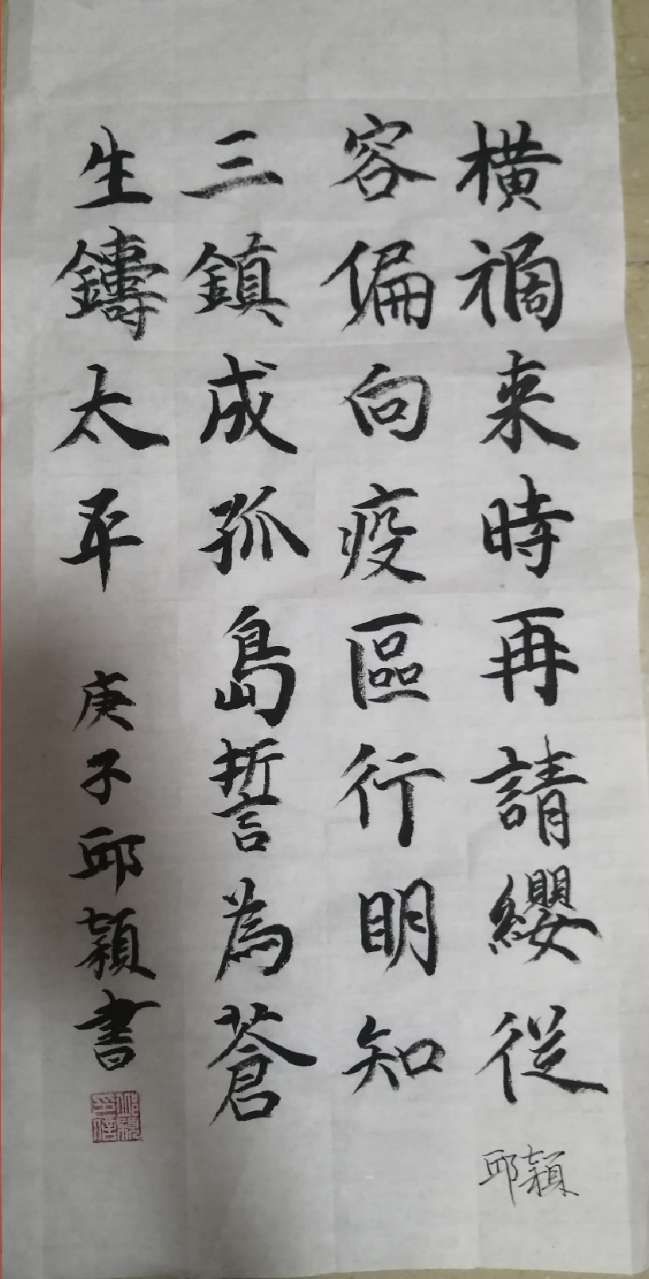 橫禍来時再請纓従
容偏向疫區行明知
三鎮成孤島誓為蒼
生鑄太平 庚子邱穎書
邱穎